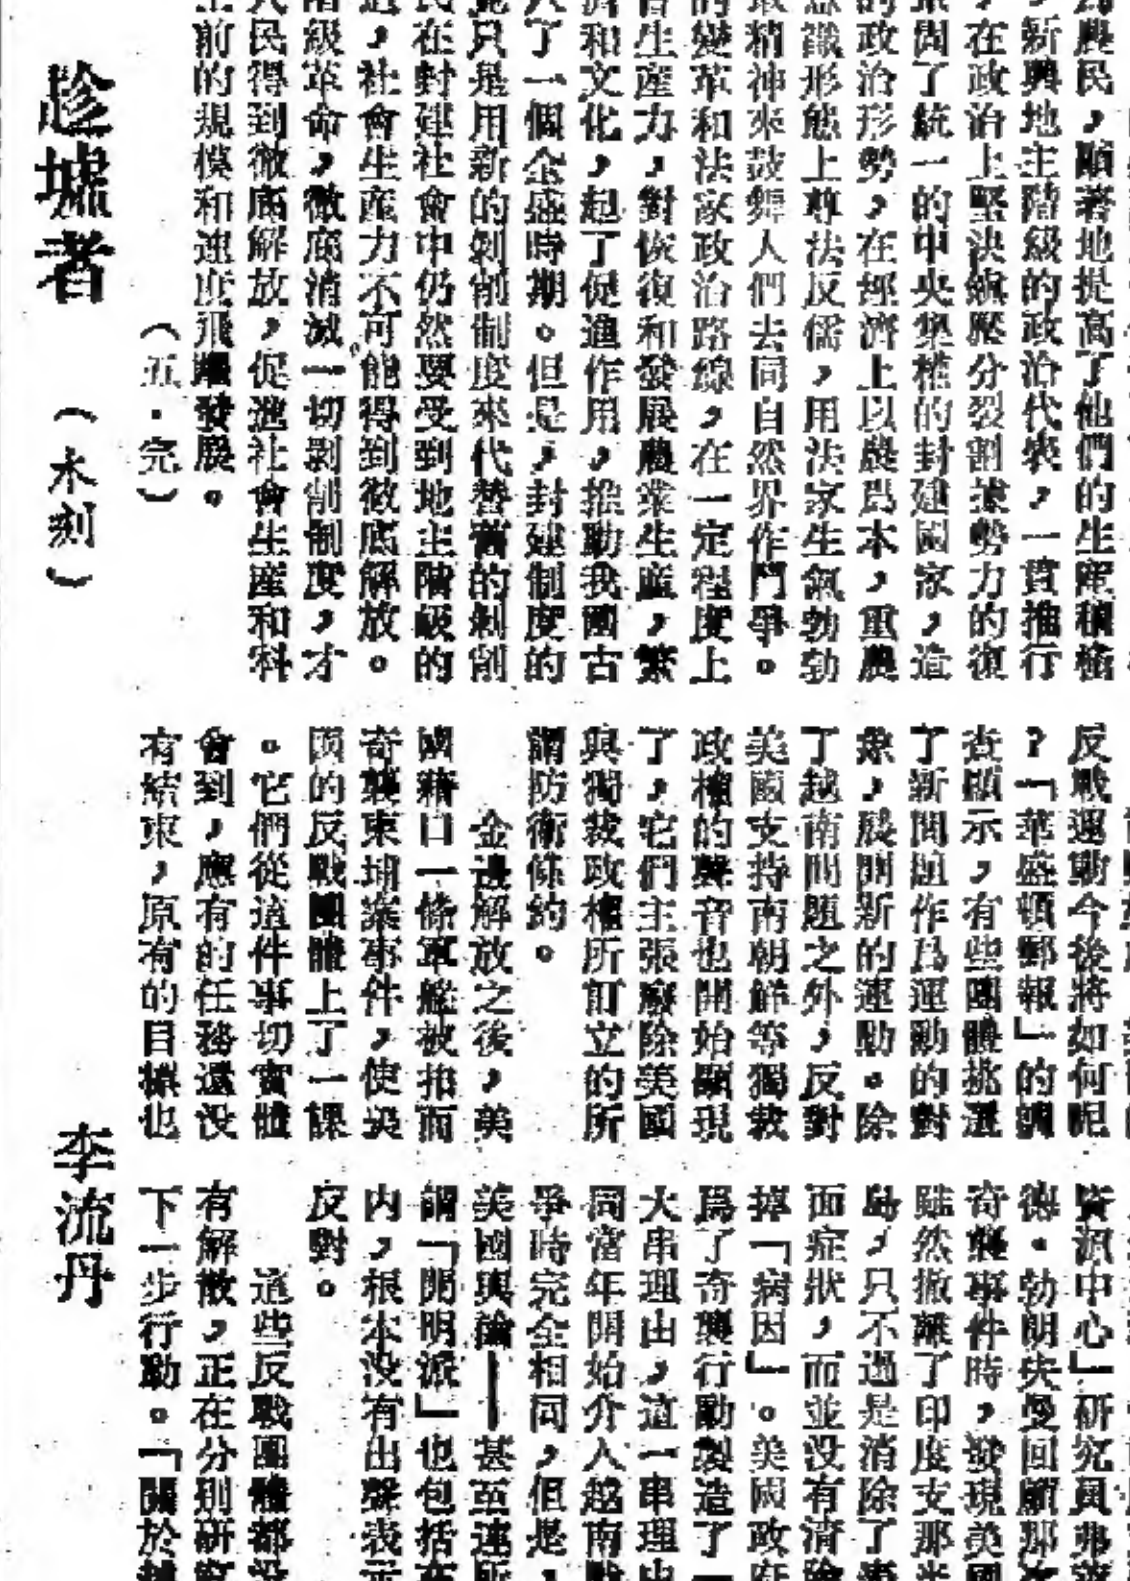 農民，顯著地提高了他們的生產積極
，新興地主階級的政治代表，一貫推行
，在政治上堅決鎮壓分裂割據勢力的復
固了統一的中央集權的封建國家，造
的政治形勢，在經濟上以農爲本，重農
意識形態上尊法反儒，用法家生氣勃勃
取精神來鼓舞人們去同自然界作鬥爭。
的變革和法家政治路線，在一定程度上
會生產力，對恢復和發展農業生產，繁
濟和文化，起了促進作用，推動我國古
入了一個全盛時期。但是，封建制度的
竟只是用新的剝削制度來代替舊的剝削
民在封建社會中仍然要受到地主階級的
，社會生產力不可能得到徹底解放。
階級革命，徹底消滅一切剝削制度，才
人民得到徹底解放，促進社會生產和科
前的規模和速度飛躍發展。
（五·完）
反戰運動今後將如何呢
？「華盛頓郵報」的調
查顯示，有些團體挑選
了新問題作爲運動的對
象，展開新的運動。除
了越南問題之外，反對
美國支持南朝鮮等獨裁
政權的聲音也開始顯現
了，它們主張廢除美國
與獨裁政權所訂立的所
謂防衛條約。
金邊解放之後，美
國藉口一條軍艦被扣而
奇襲柬埔寨事件，使美
國的反戰團體上了一課
。它們從這件事切實體
會到，應有的任務還沒
有結束，原有的目標也
資源中心」研究員弗
德·勃朗夫曼回顧那次
奇襲事件時，發現美國
雖然撤離了印度支那半
島，只不過是消除了
面症狀，而並沒有清除
掉「病因」。美國政府
爲了奇襲行動製造了一
大串理由，這一串理由
同當年開始介入越南戰
爭時完全相同，但是，
美國輿論——甚至連所
謂「開明派」也包括在
內，根本沒有出聲表示
反對。
這些反戰團體都沒
有解散，正在分別研究
下一步行動。「關於越
趁墟者
（木刻）
李流丹